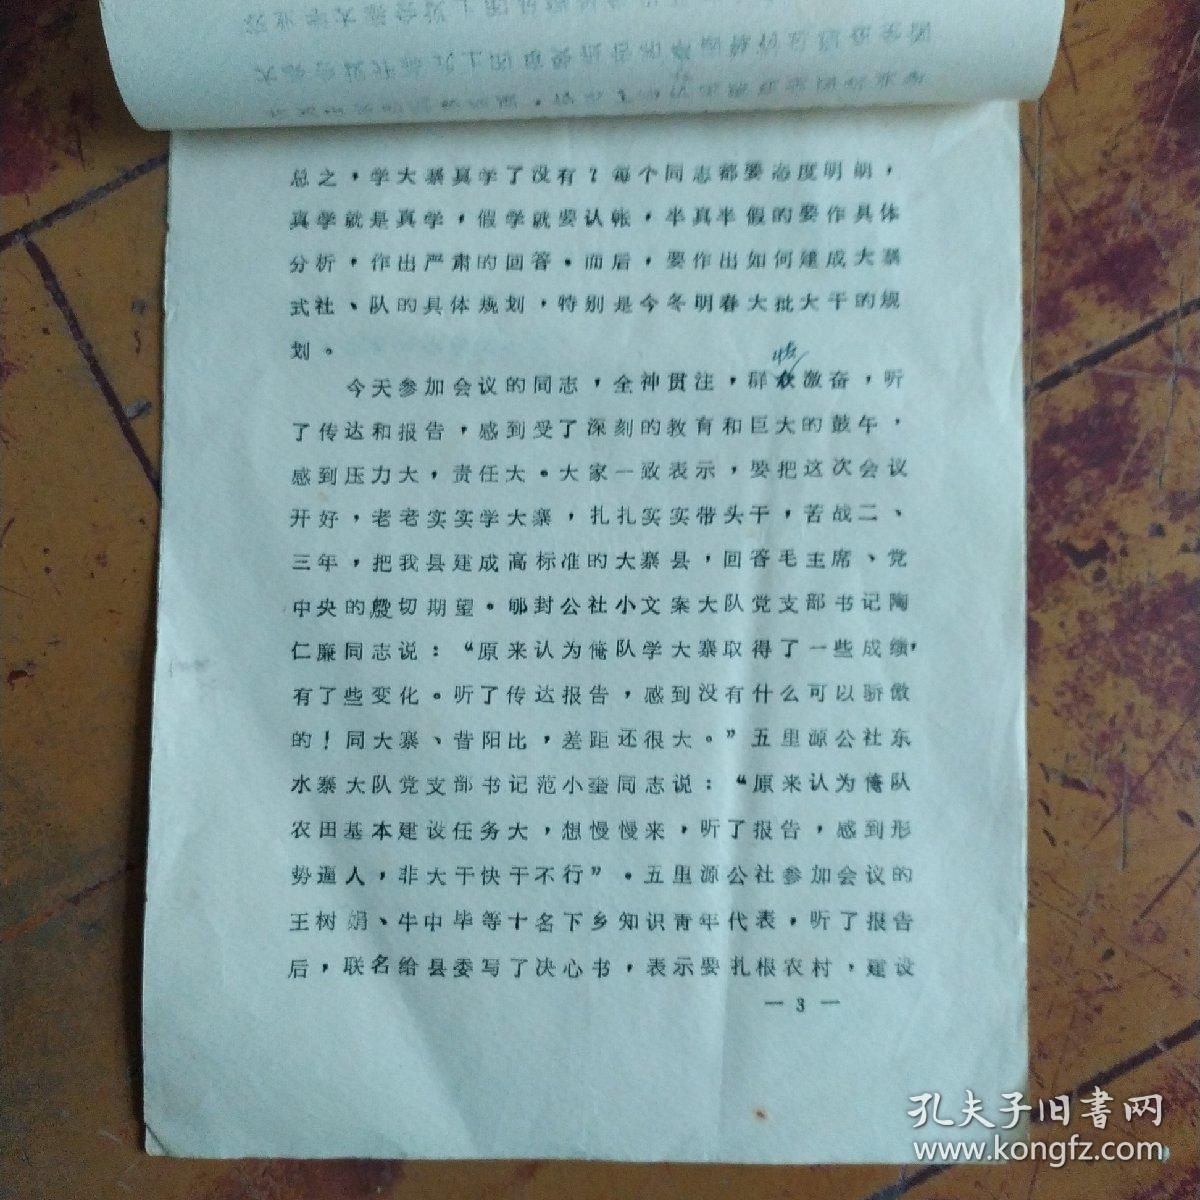 总之，学大寨真学了没有？每个同志都要态度明朗，
真学就是真学，假学就要认帐，半真半假的要作具体
分析，作出严肃的回答。而后，要作出如何建成大寨
式社、队的具体规划，特别是今冬明春大批大干的规
划。
今天参加会议的同志，全神贯注，群众激奋，听
了传达和报告，感到受了深刻的教育和巨大的鼓午，
感到压力大，责任大。大家一致表示，要把这次会议
开好，老老实实学大寨，扎扎实实带头干，苦战二、
三年，把我县建成高标准的大寨县，回答毛主席、党
中央的殷切期望。郇封公社小文案大队党支部书记陶
仁廉同志说：“原来认为俺队学大寨取得了一些成绩，
有了些变化。听了传达报告，感到没有什么可以骄傲
的！同大寨、昔阳比，差距还很大。”五里源公社东
水寨大队党支部书记范小奎同志说：“原来认为俺队
农田基本建设任务大，想慢慢来，听了报告，感到形
势逼人，非大干快干不行”。五里源公社参加会议的
王树娟、牛中毕等十名下乡知识青年代表，听了报告
后，联名给县委写了决心书，表示要扎根农村，建设
— 3 —
孔夫子旧书网
www.kongfz.com